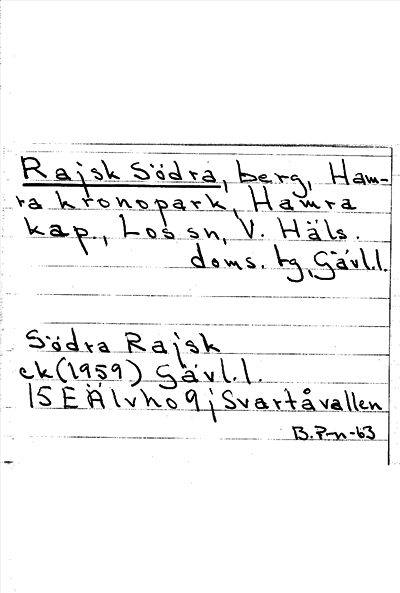 Rajsk Södra, berg, Ham-
ra kronopark, Hamra
kap., Los sn, V. Häls.
doms. tg, Gävl.l.
Södra Rajsk
ek (1959) Gävl.l.
15E Älvho 9j Svartåvallen
B.P-n-63